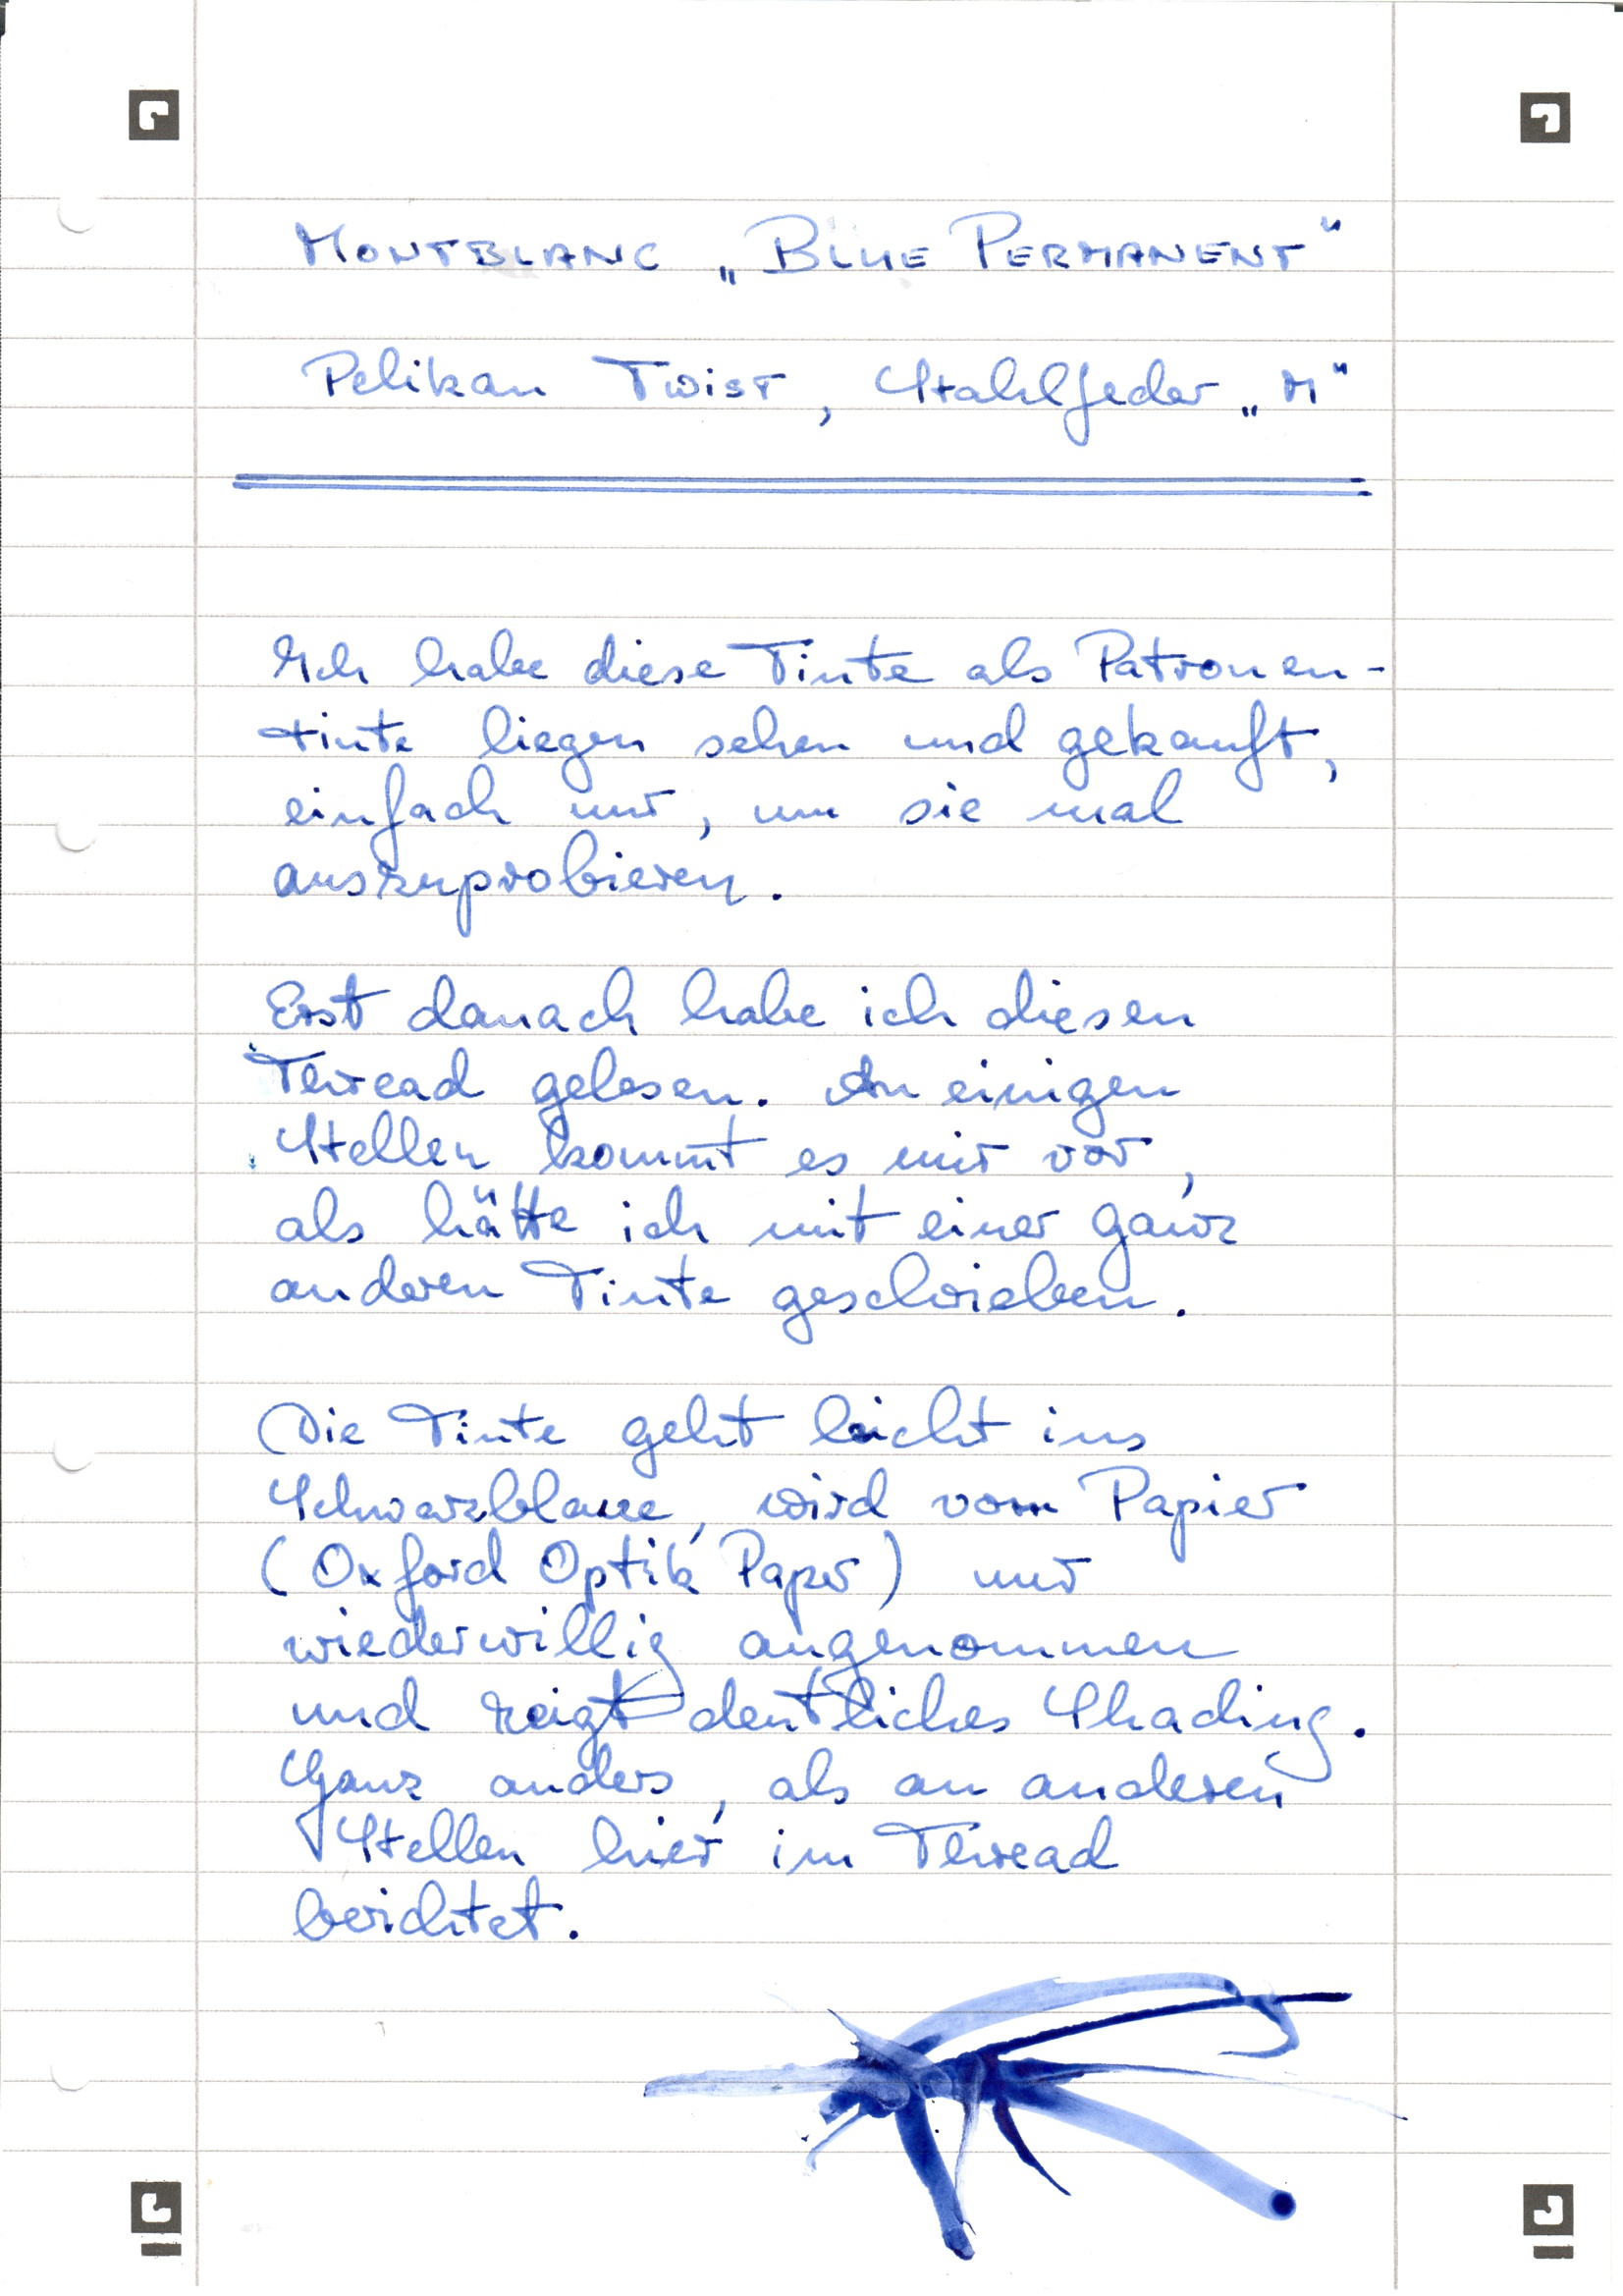 MONTBLANC „BLUE PERMANENT"
Pelikan TWIST, Stahlfeder „M"
Ich habe diese Tinte als Patronen-
tinte liegen sehen und gekauft,
einfach nur, um sie mal
auszuprobieren.
Erst danach habe ich diesen
Thread gelesen. An einigen
Stellen kommt es mir vor,
als hätte ich mit einer ganz
anderen Tinte geschrieben.
Die Tinte geht leicht ins
Schwarzblaue, wird vom Papier
(Oxford Optik Paper) nur
wiederwillig angenommen
und zeigt deutliches Shading.
Ganz anders, als an anderen
Stellen hier im Thread
berichtet.